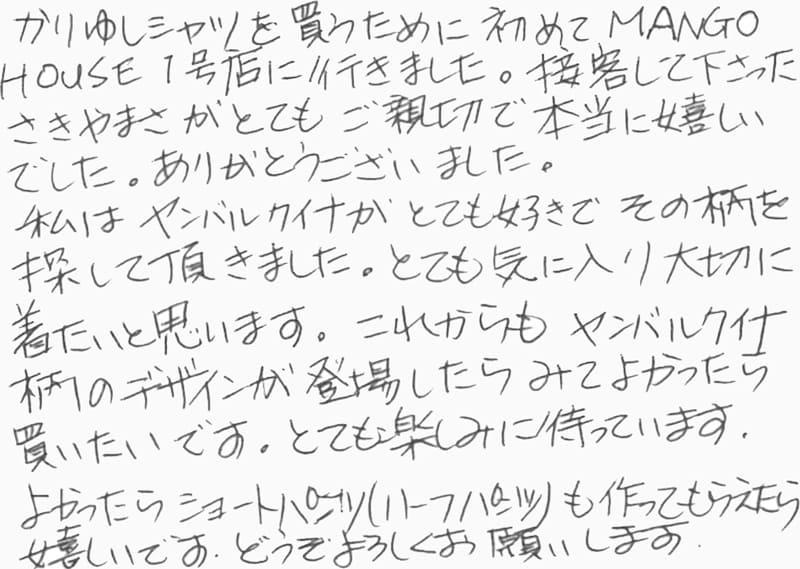 かりゆしシャツを買うために初めて MANGO
HOUSE 1号店に行きました。接客して下さった
さきやまさがとてもご親切で本当に嬉しい
でした。ありがとうございました。
私はヤンバルクイナがとても好きでその柄を
探して頂きました。とても気に入り大切に
着たいと思います。これからもヤンバルクイナ
柄のデザインが登場したらみてよかったら
買いたいです。とても楽しみに待っています.
よかったらショートパンツ(ハーフパンツ)も作ってもらえたら
嬉しいです.どうぞよろしくお願いします.